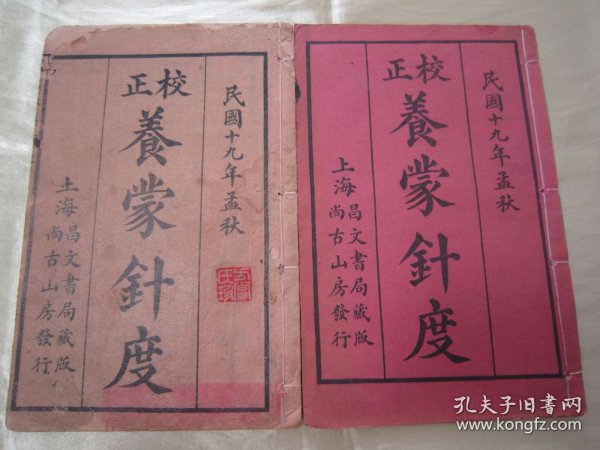 民國十九年孟秋
校正
養蒙針度
上海昌文書局藏版
尚古山房發行
民國十九年孟秋
校正
養蒙針度
上海昌文書局藏版
尚古山房發行
孔夫子旧书网
www.kongfz.com